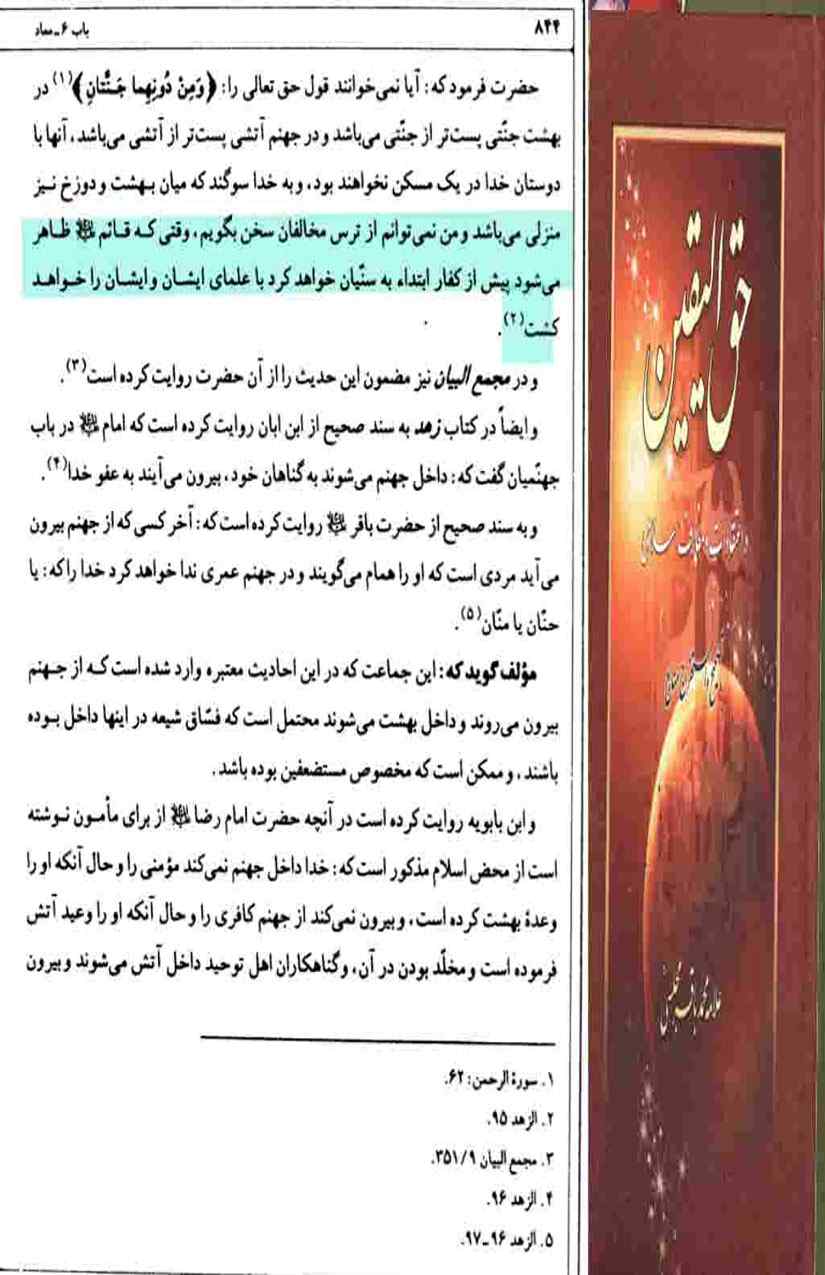 ۸۴۴
باب ۶ـ معاد
حضرت فرمود که: آیا نمی‌خوانند قول حق تعالی را: ﴿وَمِنْ دُونِهِما جَنَّتانِ﴾(۱) در
بهشت جنّتی پست‌تر از جنّتی می‌باشد و در جهنم آتشی پست‌تر از آتشی می‌باشد، آنها با
دوستان خدا در یک مسکن نخواهند بود، و به خدا سوگند که میان بهشت و دوزخ نیز
منزلی می‌باشد و من نمی‌توانم از ترس مخالفان سخن بگویم، وقتی که قائم ﷷ ظاهر
می‌شود پیش از کفار ابتداء به سنّیان خواهد کرد با علمای ایشان و ایشان را خواهد
کشت(۲).
و در مجمع البیان نیز مضمون این حدیث را از آن حضرت روایت کرده است(۳).
و ایضاً در کتاب زهد به سند صحیح از ابن ابان روایت کرده است که امام ﷷ در باب
جهنّمیان گفت که: داخل جهنم می‌شوند به گناهان خود، بیرون می‌آیند به عفو خدا(۴).
و به سند صحیح از حضرت باقر ﷷ روایت کرده است که: آخر کسی که از جهنم بیرون
می‌آید مردی است که او را همام می‌گویند و در جهنم عمری ندا خواهد کرد خدا را که: یا
حنّان یا منّان(۵).
مؤلف گوید که: این جماعت که در این احادیث معتبره وارد شده است که از جهنم
بیرون می‌روند و داخل بهشت می‌شوند محتمل است که فسّاق شیعه در اینها داخل بوده
باشند، و ممکن است که مخصوص مستضعفین بوده باشد.
و ابن بابویه روایت کرده است در آنچه حضرت امام رضا ﷷ از برای مأمون نوشته
است از محض اسلام مذکور است که: خدا داخل جهنم نمی‌کند مؤمنی را و حال آنکه او را
وعدهٔ بهشت کرده است، و بیرون نمی‌کند از جهنم کافری را و حال آنکه او را وعید آتش
فرموده است و مخلّد بودن در آن، و گناهکاران اهل توحید داخل آتش می‌شوند و بیرون
۱. سورهٔ الرحمن: ۶۲.
۲. الزهد ۹۵.
۳. مجمع البیان ۳۵۱/۹.
۴. الزهد ۹۶.
۵. الزهد ۹۶ـ۹۷.
حق الیقین
علامه محمد باقر مجلسی